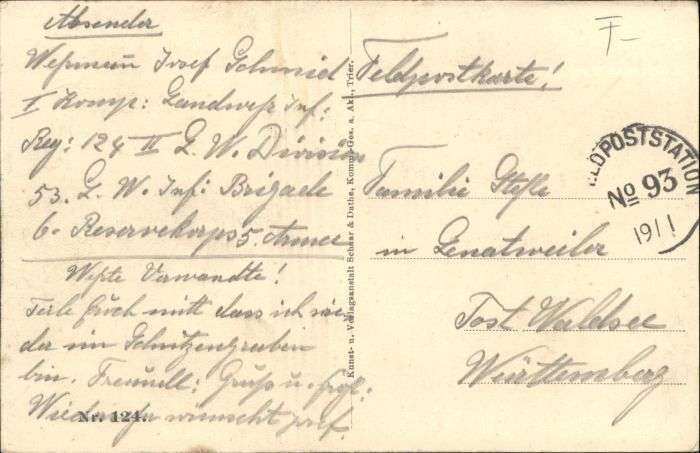 Absender
Wehrmann Josef Schmid
I Komp: Landwehr Inf:
Reg: 124 II L. W. Division
53. L. W. Inf: Brigade
6. Reservekorps 5. Armee
Werte Verwandte!
Teile Euch mitt dass ich wie
der im Schützengraben
bin. Freundl: Gruß u. frohl:
Wiedersehn wünscht Josef.
Nr. 124.
Kunst- u. Verlagsanstalt Schaar & Dathe, Komm.-Ges. a. Akt., Trier.
F
Feldpostkarte!
FELDPOSTSTATION
No 93
19 11
Familie
in
Post Waldsee
Württemberg